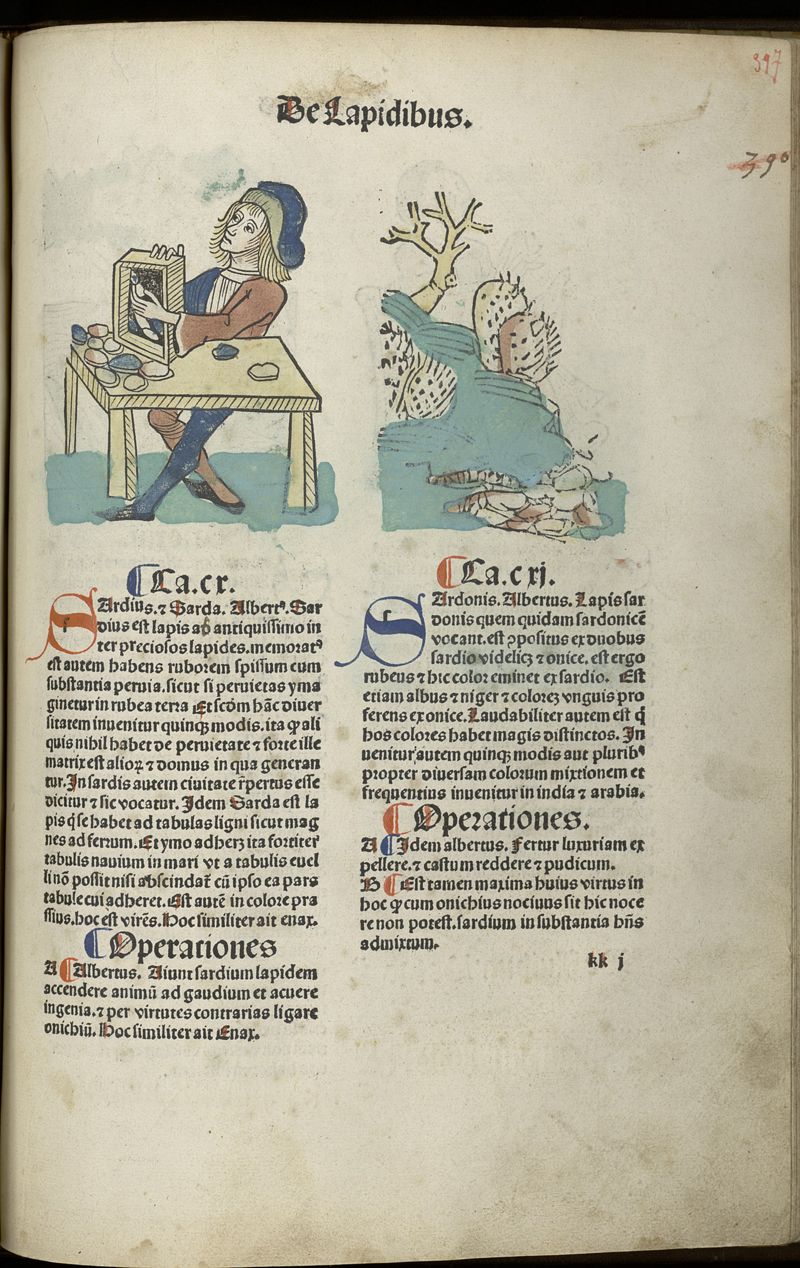 397
De Lapidibus.
390
¶ Ca.cx.
SArdius.⁊ Sarda. Albertꝰ. Sar
dius est lapis ab antiquissimo in
ter preciosos lapides.memoratꝰ
est autem habens ruborem spissum cum
substantia peruia.sicut si peruietas yma
ginetur in rubea terra Et scdm hāc diuer
sitatem inuenitur quinqꝫ modis.ita ꝙ ali
quis nihil habet de peruietate ⁊ forte ille
matrix est alioꝝ ⁊ domus in qua generan
tur.In sardis autem ciuitate rꝑertus esse
dicitur ⁊ sic vocatur. Idem Sarda est la
pis q̄ se habet ad tabulas ligni sicut mag
nes ad ferrum. Et ymo adherꝫ ita fortiter
tabulis nauium in mari vt a tabulis euel
li nō possit nisi abscindat᷑ cū ipso ea pars
tabule cui adheret. Est autē in colore pra
ssius.hoc est virēs. Hoc similiter ait enax.
¶ Operationes
A ¶ Albertus. Aiunt sardium lapidem
accendere animū ad gaudium et acuere
ingenia.⁊ per virtutes contrarias ligare
onichiū. Hoc similiter ait Enax.
¶ Ca.cxj.
SArdonis. Albertus. Lapis sar
donis quem quidam sardonicē
vocant.est ꝯpositus ex duobus
sardio videlicꝫ ⁊ onice. est ergo
rubeus ⁊ hic color eminet ex sardio. Est
etiam albus ⁊ niger ⁊ coloreꝫ vnguis pro
ferens ex onice. Laudabiliter autem est q̄
hos colores habet magis distinctos. In
uenitur autem quinqꝫ modis aut pluribꝰ
propter diuersam colorum mixtionem et
frequentius inuenitur in india ⁊ arabia.
¶ Operationes.
A ¶ Idem albertus. Fertur luxuriam ex
pellere.⁊ castum reddere ⁊ pudicum.
B ¶ Est tamen maxima huius virtus in
hoc ꝙ cum onichius nociuus sit hic noce
re non potest.sardium in substantia hn̄s
admixtum.
kk j